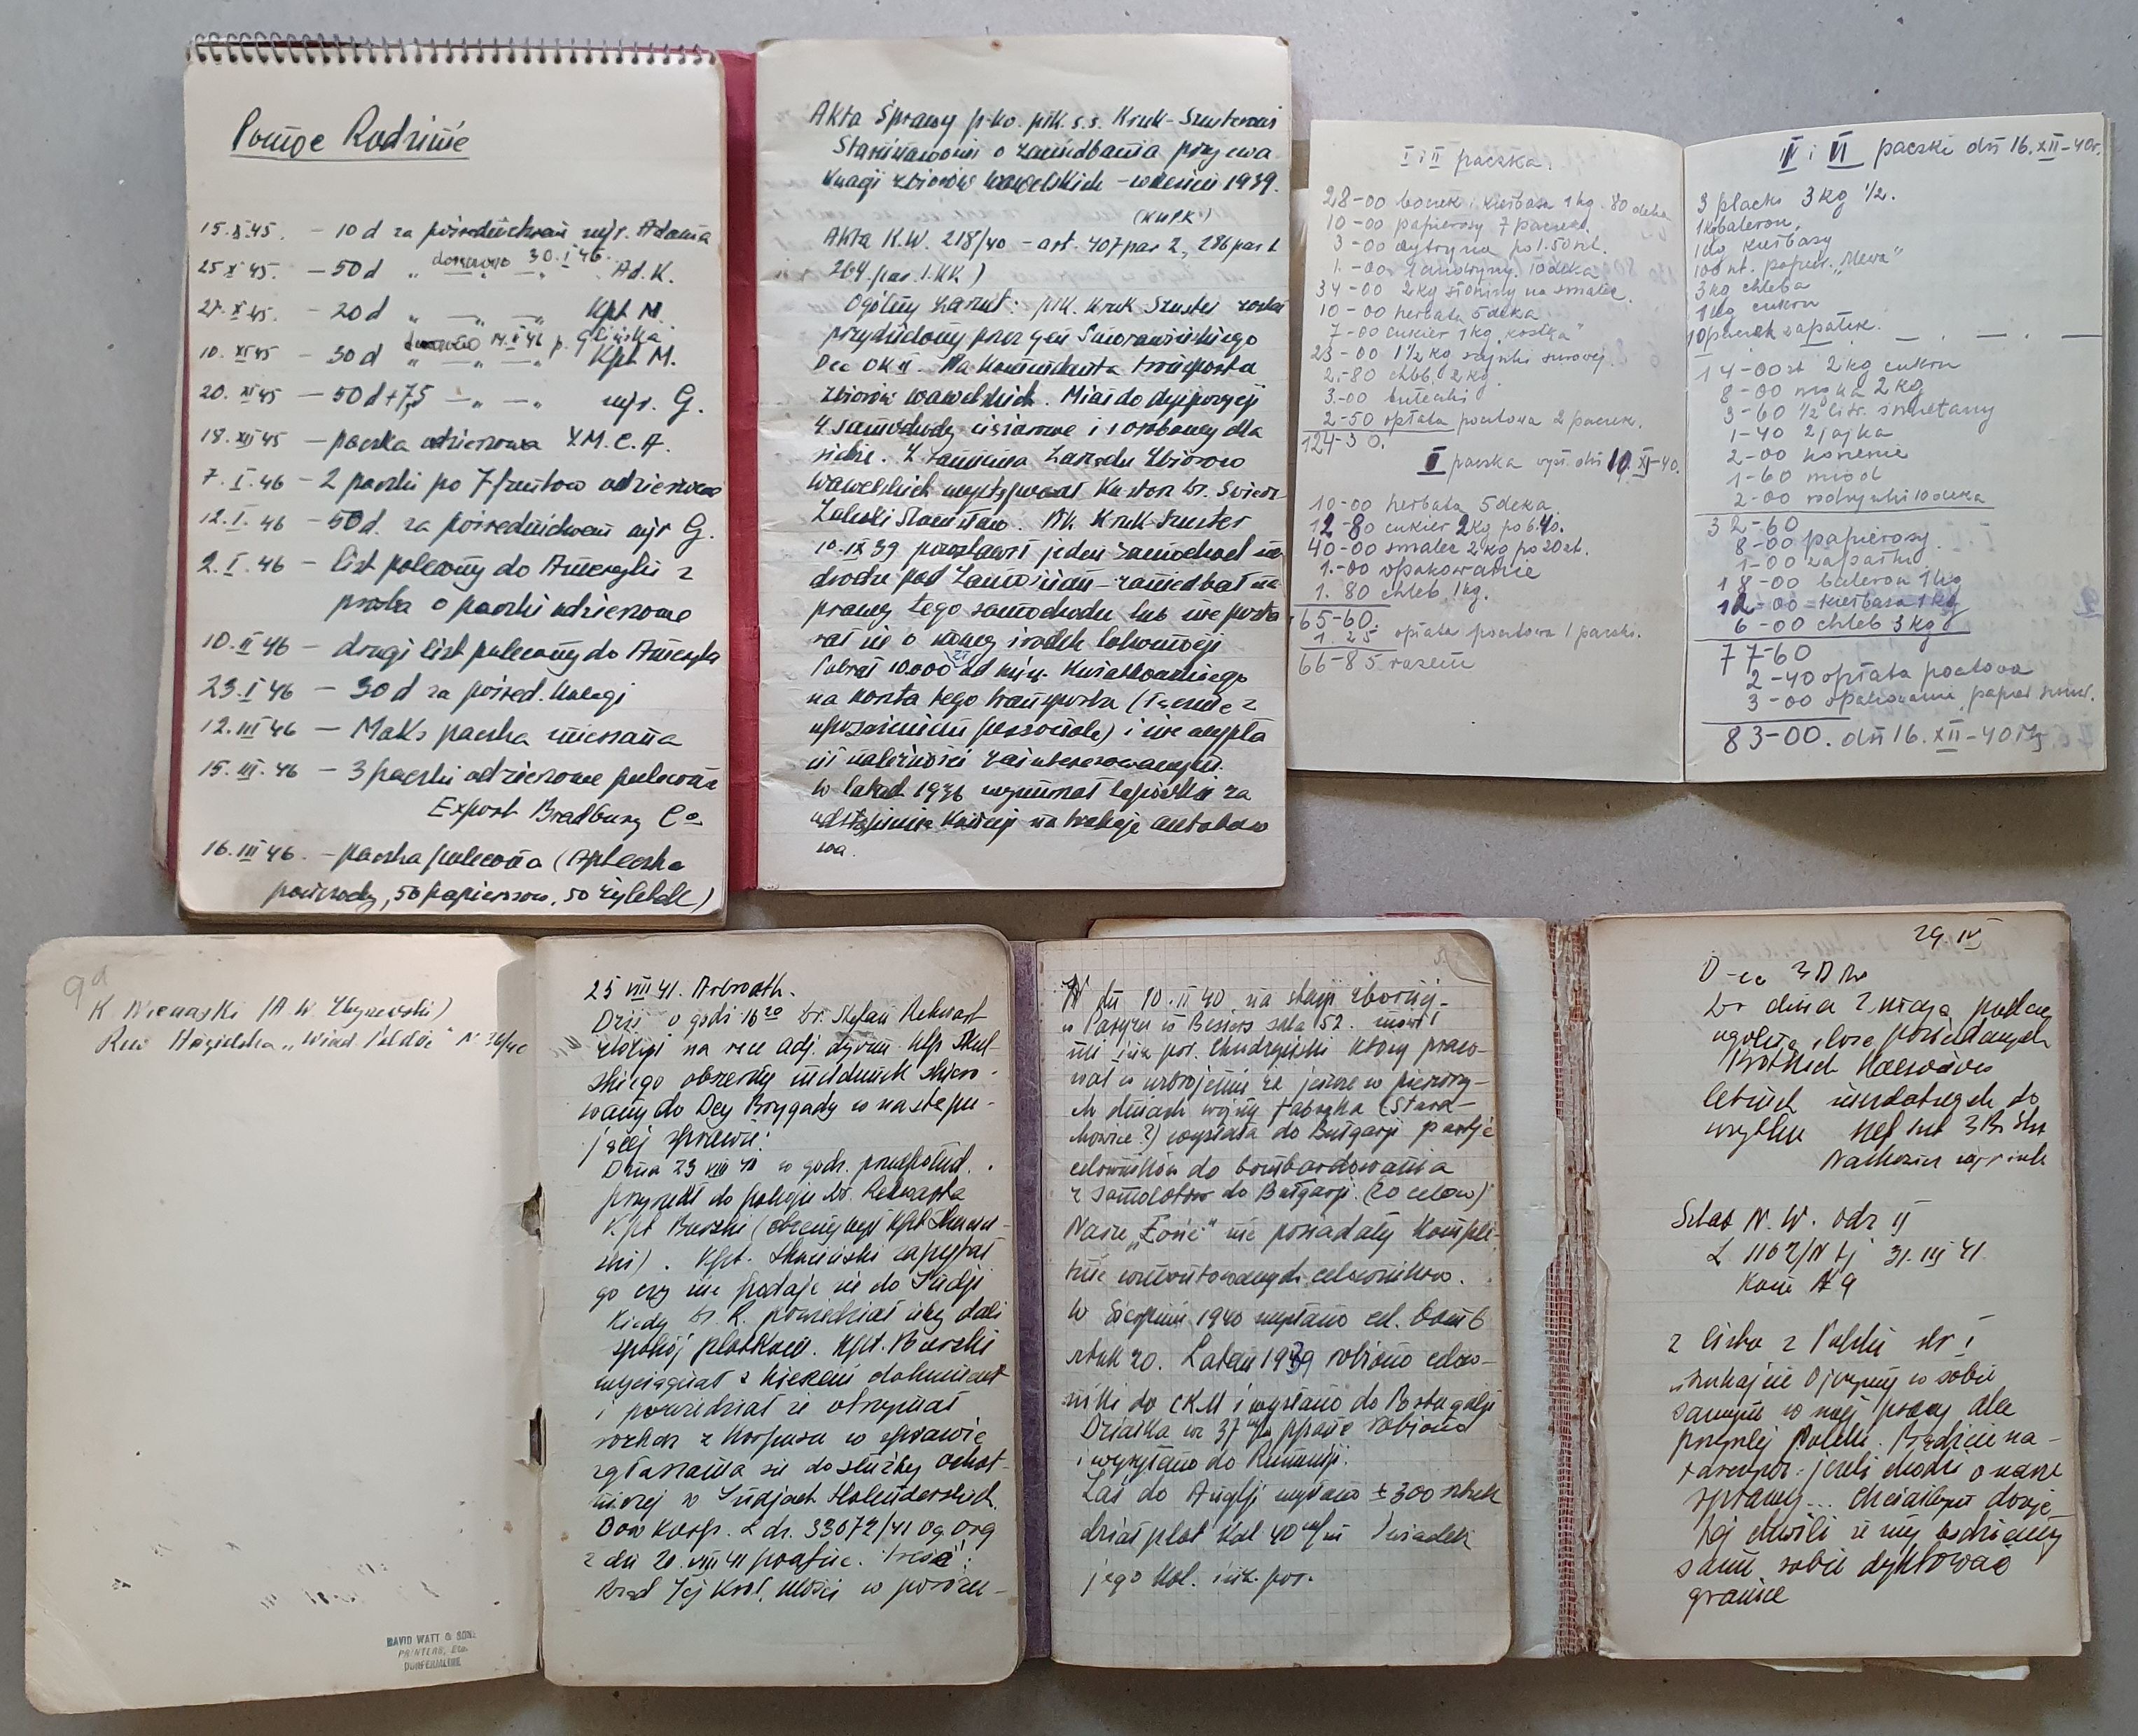 Pomoc Rodzinie
15.X.45. – 10 d za pośrednictwem mjr. Adama
25.X.45. – 50 d " doręczono 30.I.46. " Ad. K.
– 20 d " — " — " Kpt M.
10.XI.45 – 30 d " — " — " Kpt M.
20.XI.45 – 50 d + 7,5 — " — " — mjr. G.
18.XII.45 – paczka odzieżowa Y.M.C.A.
7.I.46 – 2 paczki po 7 funtów odzieżowe
12.I.46 – 50 d. za pośrednictwem mjr G.
2.I.46 – list polecony do Ameryki z
prośbą o paczki odzieżowe
10.II.46 – drugi list polecony do Ameryki
23.I.46 – 30 d za pośred.
12.III.46 – Maks paczka mieszana
15.III.46 – 3 paczki odzieżowe polecone
Export Bradbury Co
16.III.46. – paczka polecona (Apteczka
50 papierosów, 50 żyletek)
Akta Sprawy p-ko. płk. s.s. Kruk-Szusterowi
Stanisławowi o zaniedbania przy ewa
kuacji zbiorów wawelskich – wrzesień 1939.
Akta K.W. 218/40 – art. 407 par 2, 286 par 1
264. par. 1. KK)
Ogólny zarzut: płk. Kruk Szuster został
przydzielony przez gen
Dcę OK V. na komendanta transportu
zbiorów wawelskich. Miał do dyspozycji
4 samochody ciężarowe i 1 osobowy dla
siebie. Z ramienia Zarządu Zbiorów
Wawelskich występował Kustosz Dr. Świerz
Zaleski Stanisław. Płk. Kruk-Szuster
10.IX.39 pozostawił jeden samochód na
drodze pod – zaniedbał na
prawy tego samochodu lub nie posta
rał się o nowy środek lokomocji
Pobrał 10.000 zł od min. Kwiatkowskiego
na koszta tego transportu (łącznie z
uposażeniem personelu) i nie wypła
cił należności zainteresowanym.
W latach 1936 wymuszał łapówki za
odstąpienie koncesji na trakcje autobuso
wa.
I i II paczka.
28-00 boczek i kiełbasa 1 kg. 80 deka
10-00 papierosy 7 paczek.
3-00 cytryna po 1.50 szt.
1.-00 10 deka
34-00 2 kg słoniny na smalec.
10-00 herbata 5 deka
7-00 cukier 1 kg „kostka"
23-00 1 1/2 kg szynki surowej.
2.-80 chleb. 2 kg.
3.-00 butelki
2-50 opłata pocztowa 2 paczek.
124-30.
III paczka wysł. dń 19.XI-40.
10-00 herbata 5 deka.
12-80 cukier 2 kg po 6.40.
40-00 smalec 2 kg po 20 zł.
1.-00 opakowanie
1. 80 chleb. 1 kg.
65-60.
1. 25 opłata pocztowa 1 paczki.
66-85 razem
IV i VI paczki dń 16.XII-40r.
3 placki 3 kg 1/2.
1 kg baleron,
1 kg kiełbasy
100 szt. papier. „Mewa"
3 kg chleba
1 kg cukru
10 paczek zapałek.
14-00 zł 2 kg cukru
8-00 mąka 2 kg
3-60 1/2 litr. śmietany
1-40 2 jajka
2-00 korzenie
1-60 miód
2-00 rodzynki 10 deka
32-60
8-00 papierosy.
1-00 zapałki
18-00 baleron 1 kg
12-00 kiełbasa 1 kg
6-00 chleb 3 kg
77-60
2-40 opłata pocztowa
3-00 opakowanie, papier sznur.
83-00. dń 16.XII-40
9a
K
„Wiad. Polskie" N 36/40
DAVID WATT & SONS
PRINTERS, Etc.
DUNFERMLINE
25 VIII 41. Arbroath.
Dziś o godz. 16 20 Dr. Stefan Rekwart
złożył na ręce adj. dyżur. kpt Skul-
skiego obszerny meldunek skiero-
wany do Dcy Brygady w następu-
jącej sprawie:
Dnia 23 VIII 41 w godz. przedpołud.
przyszedł do pokoju Dr. Rekwarta
Kpt Burski (obecny był kpt
ski). Kpt. zapytał
go czy nie podaje się do Indji
Kiedy Dr. R. powiedział żeby dali
spokój plotkom. Kpt. Burski
wyciągnął z kieszeni dokument
i powiedział że otrzymał
rozkaz z Korpusu w sprawie
zgłaszania się do służby ochot-
niczej w Indjach Holenderskich.
Dow Korp. L dz. 33072/41 Og. Org
z dn 20. VIII 41 poufne. treść:
Rząd Jej Król. Mości w porozu-
W dn 10.II 40 na stacji zbornej
w Paryżu w Bessiers sala 52. mówił
mi inż por. Chudzyński który praco-
wał w uzbrojeniu że jeszcze w pierwszy-
ch dniach wojny fabryka (Stara-
chowice?) wysłała do Bułgarji partję
celowników do bombardowania
z samolotów do Bułgarji. (20 celow)
Nasze „Łosie" nie posiadały komple-
tnie wmontowanych celowników.
W Sierpniu 1940 wysłano cel. bomb
sztuk 20. Latem 1939 robiono celow-
niki do CKM i wysłano do Portugalji
Działka 37 m/m ppanc robiono
i wysyłano do Rumunji.
Zaś do Anglji wysłano ± 300 sztuk
dział plot kal 40 m/m Świadek
jego kol. inż. por.
29. IV
D-ca 3 D
Do dnia 2 maja podać
ogólną ilość posiadanych
letnich niezdatnych do
Sztab N. W. odz II
L. 1162/N tj 31. III 41.
Kom № 9
z listu z Polski str I
„szukajcie Ojczyzny w sobie
samym w swej pracy dla
przyszłej Polski. Bądźcie na-
sprawy... chciałbym dożyć
tej chwili że my będziemy
sami sobie dyktować
granice